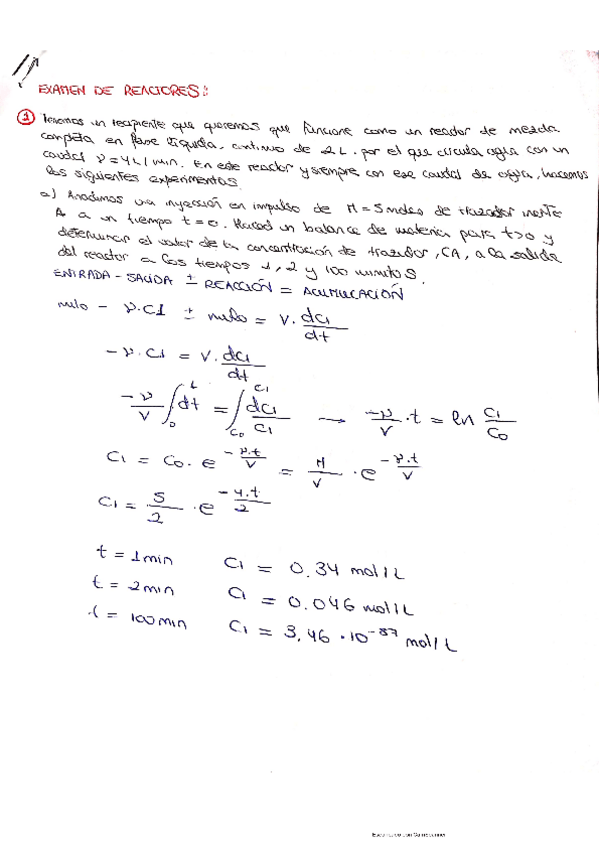 EXAMEN DE REACTORES:
① Tenemos un recipiente que queremos que funcione como un reactor de mezcla
completa en fase líquida, continuo de 2 L. por el que circula agua con un
caudal ν = 4 L/min. En este reactor y siempre con ese caudal de agua, hacemos
los siguientes experimentos.
a) Añadimos una inyección en impulso de M = 5 moles de trazador inerte
A a un tiempo t = 0. Haced un balance de materia para t>0 y
determinar el valor de la concentración de trazador, CA, a la salida
del reactor a los tiempos 1, 2 y 100 minutos.
ENTRADA - SALIDA ± REACCIÓN = ACUMULACIÓN
nulo - ν.C1 ± nulo = V. dC1/dt
-ν.C1 = V. dC1/dt
-ν/V ∫₀ᵗ dt = ∫ C0 C1 dC1/C1 → -ν/V · t = ln C1/C0
C1 = C0 · e^(-ν.t/V) = M/V · e^(-ν.t/V)
C1 = 5/2 · e^(-4.t/2)
t = 1min C1 = 0.34 mol/L
t = 2min C1 = 0.046 mol/L
t = 100min C1 = 3.46 · 10^-87 mol/L
Escaneado con CamScanner